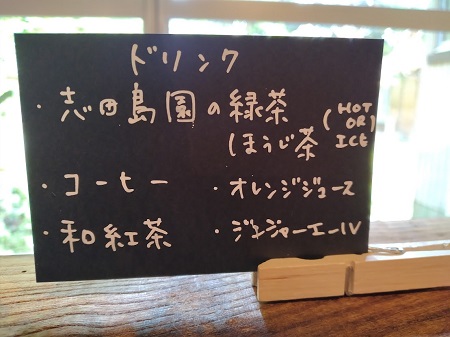 ドリンク
・志田島園の緑茶
ほうじ茶
(HOT
OR
ICE)
・コーヒー
・オレンジジュース
・和紅茶
・ジンジャーエール